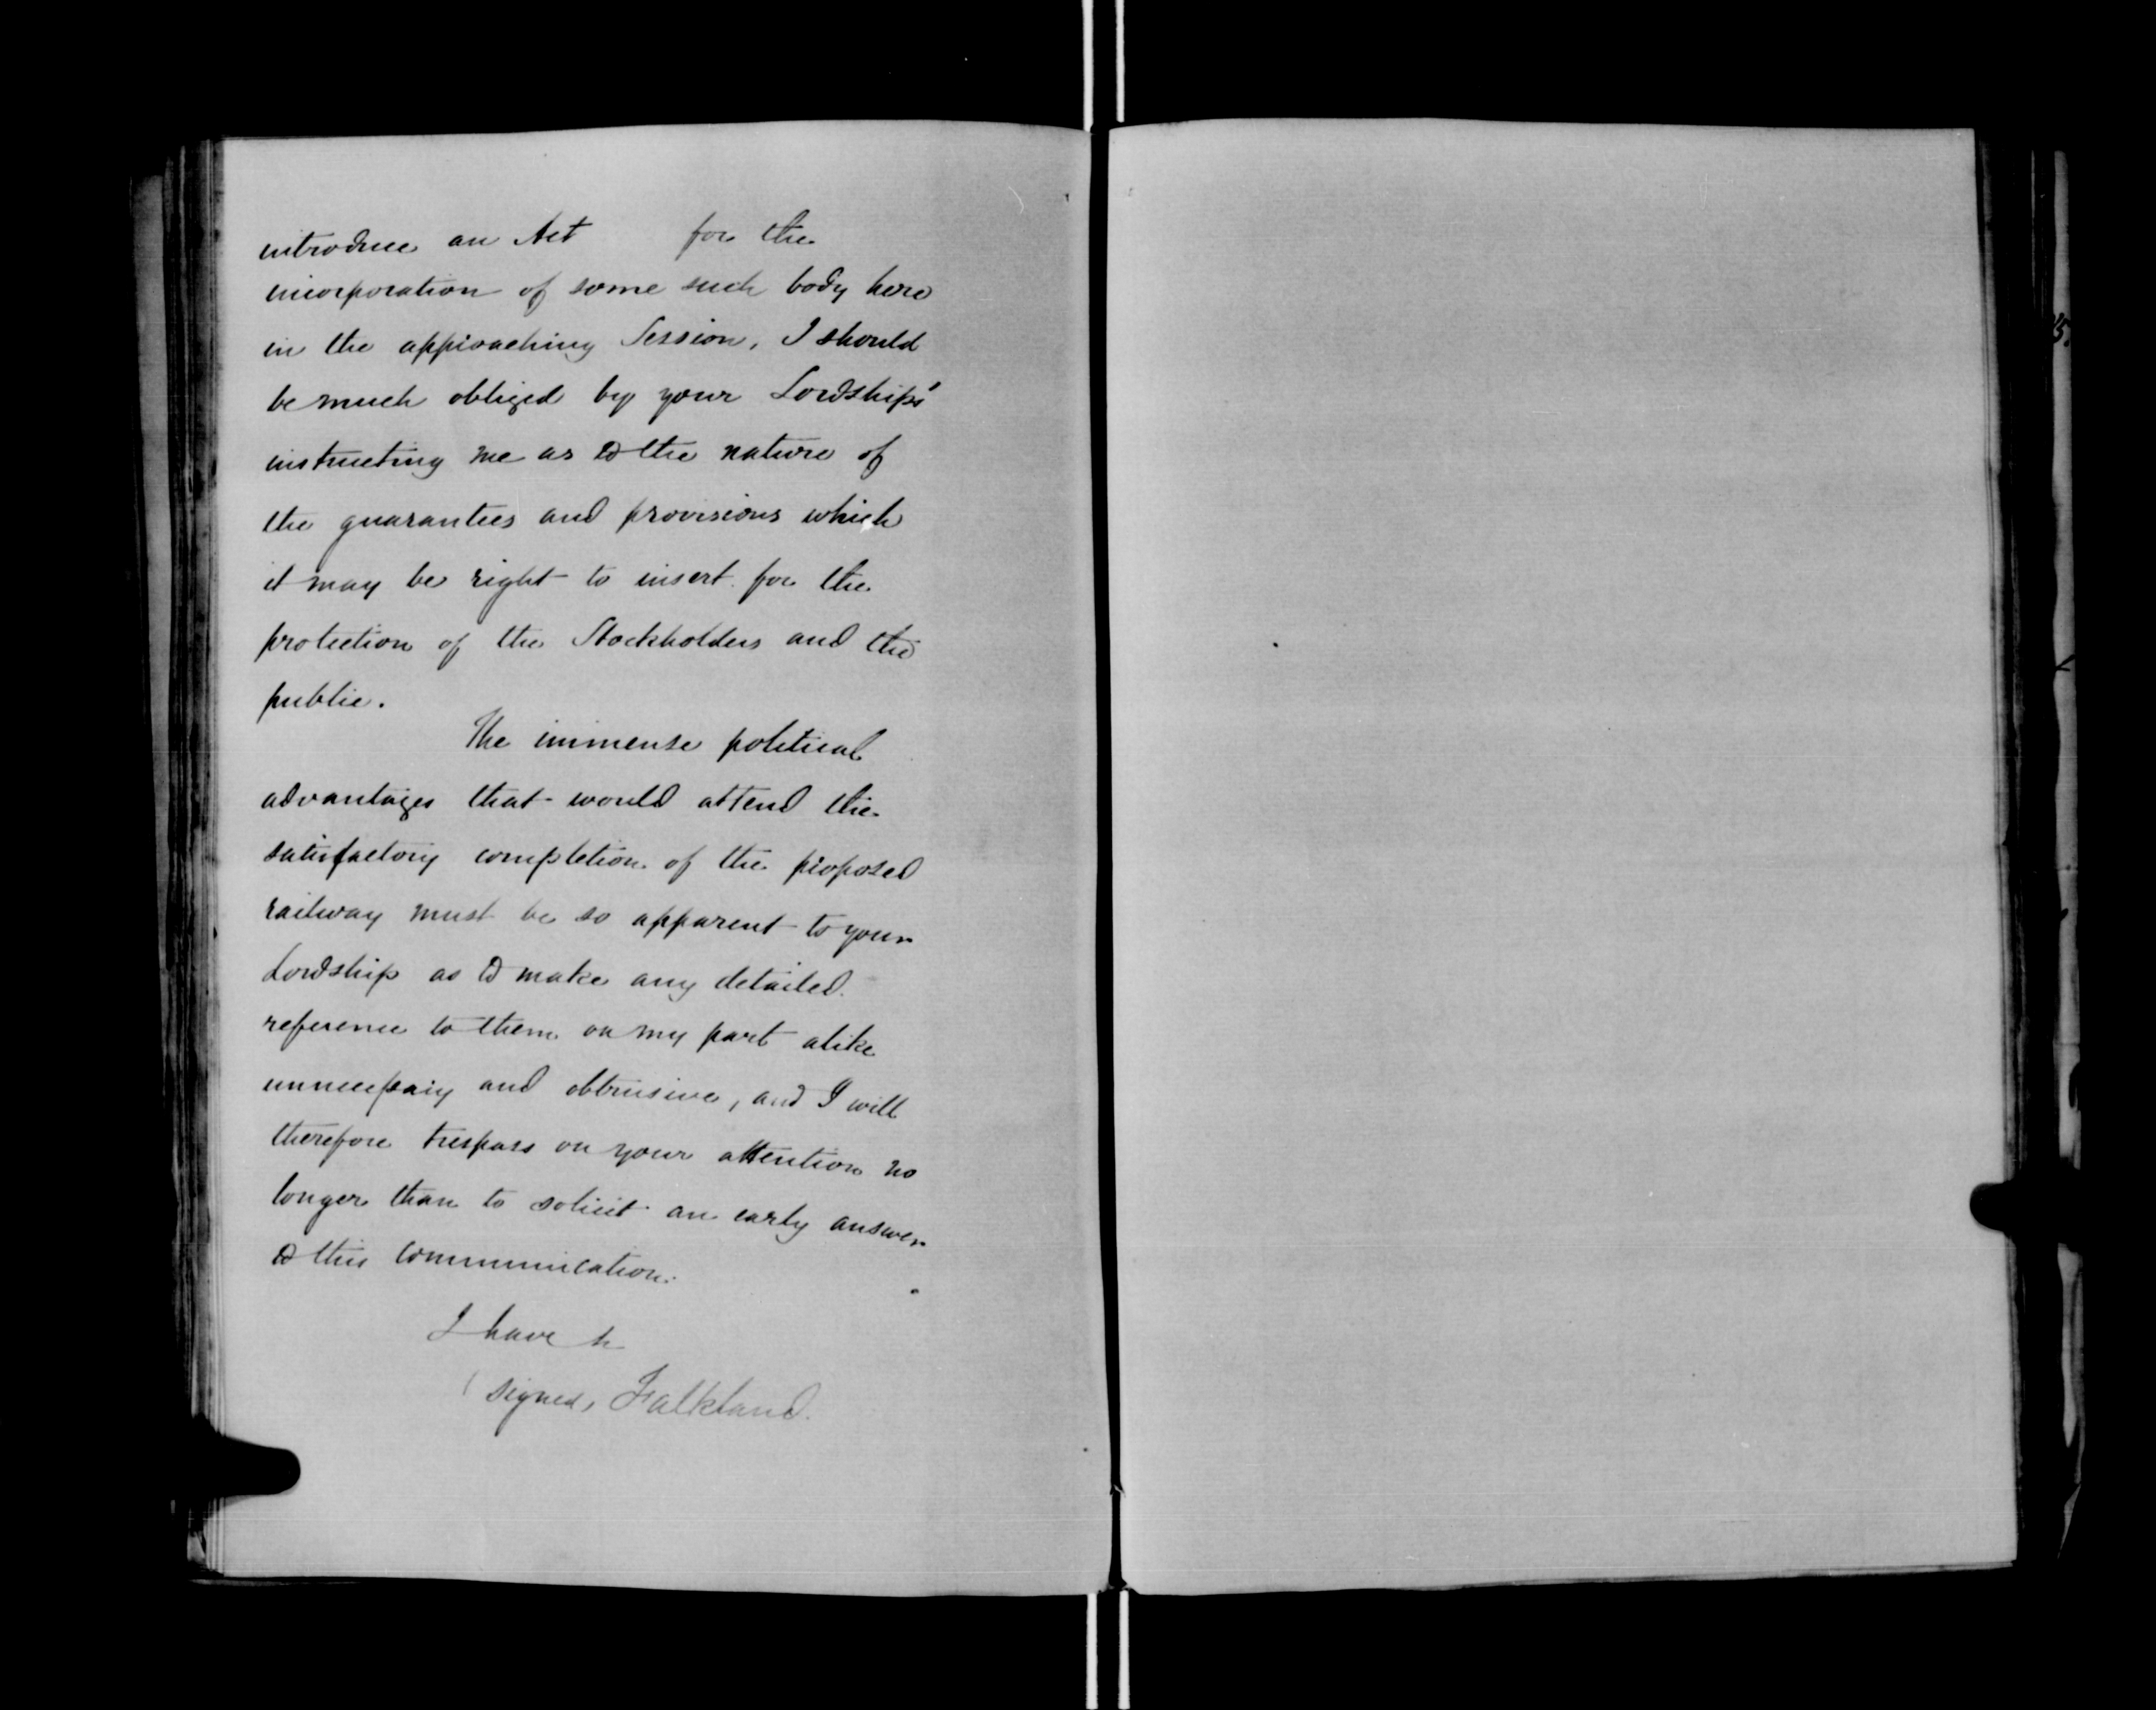 introduce an Act for the
incorporation of some such body here
in the approaching Session, I should
be much obliged by your Lordships'
instructing me as to the nature of
the guarantees and provisions which
it may be right to insert for the
protection of the Stockholders and the
public.
The immense political
advantages that would attend the
satisfactory completion of the proposed
railway must be so apparent to your
Lordship as to make any detailed
reference to them on my part alike
unnecessary and obtrusive, and I will
therefore trespass on your attention no
longer than to solicit an early answer
to this communication.
I have
(signed, Falkland.